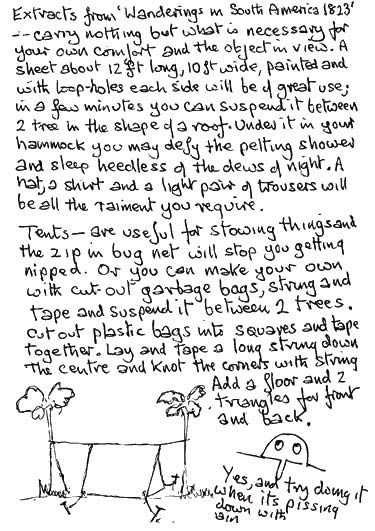 Extracts from 'Wanderings in South America 1823'
-- carry nothing but what is necessary for
your own comfort and the object in view. A
sheet about 12ft long, 10ft wide, painted and
with loop-holes each side will be of great use;
in a few minutes you can suspend it between
2 tree in the shape of a roof. Under it in your
hammock you may defy the pelting shower
and sleep heedless of the dews of night. A
hat, a shirt and a light pair of trousers will
be all the raiment you require.
Tents - are useful for stowing things and
the zip in bug net will stop you getting
nipped. Or you can make your own
with cut-out garbage bags, string and
tape and suspend it between 2 trees.
Cut out plastic bags into squares and tape
together. Lay and tape a long string down
the centre and knot the corners with string
Add a floor and 2
triangles for front
and back.
Yes, and try doing it
when its pissing
down with